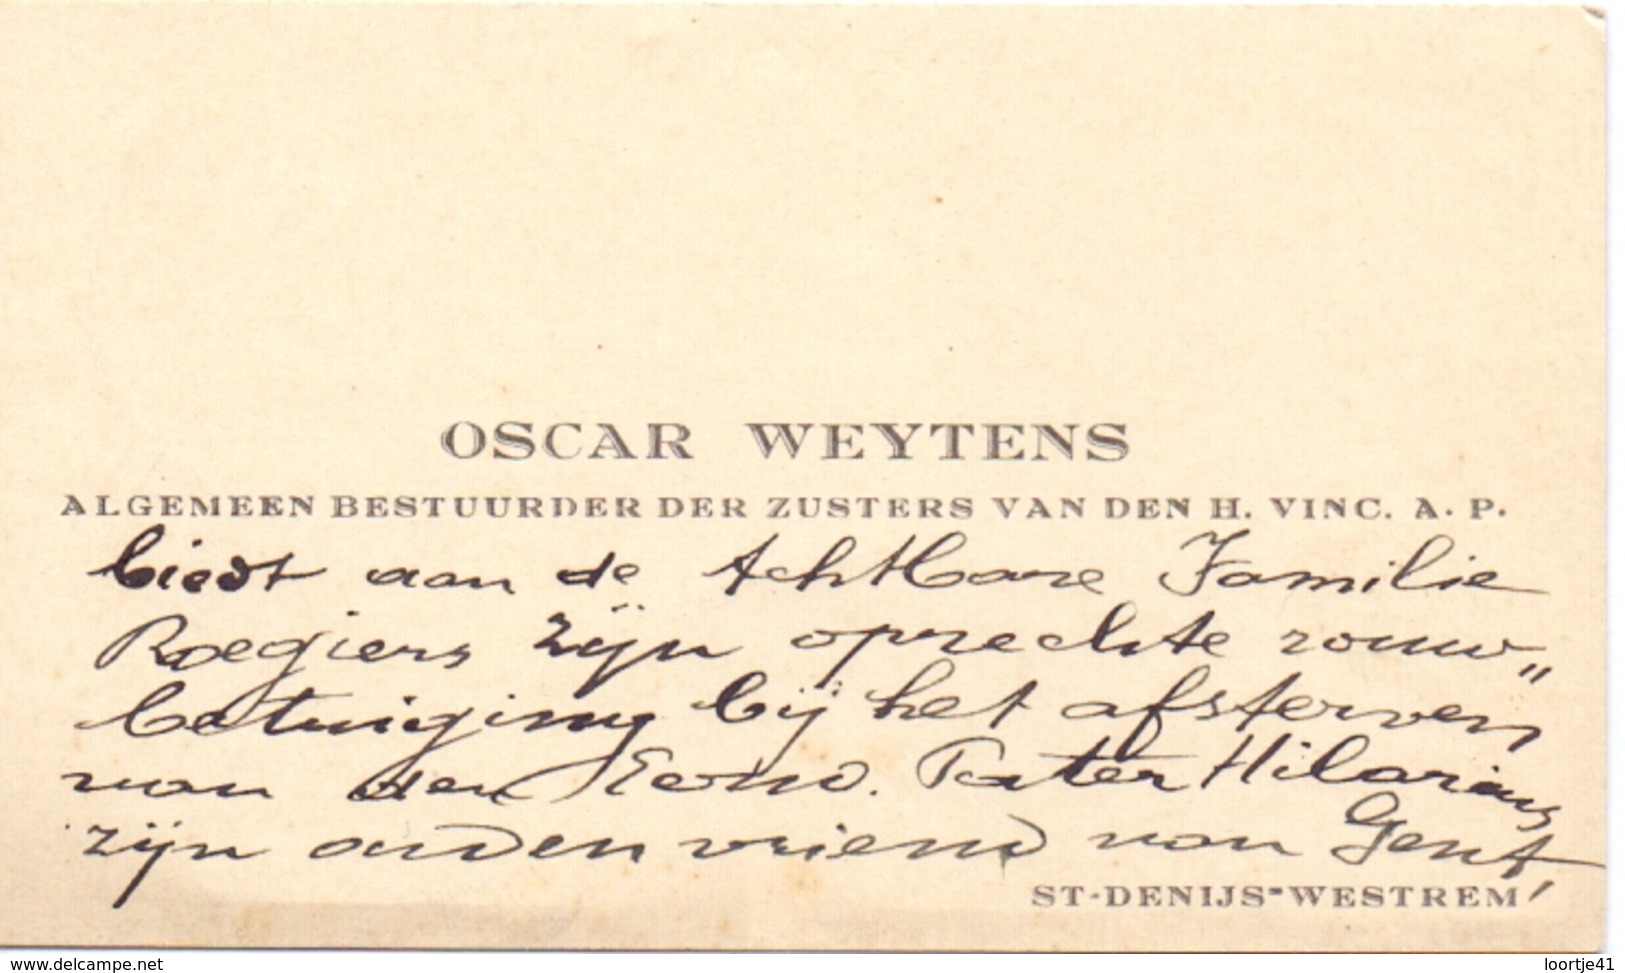 OSCAR WEYTENS
ALGEMEEN BESTUURDER DER ZUSTERS VAN DEN H. VINC. A. P.
biedt aan de Achtbare Familie
Roegiers zijn oprechte rouw"
betuiging bij het afsterven
van den Eerw. Pater Hilarius
zijn ouden vriend van Gent,
ST-DENIJS-WESTREM
www.delcampe.net
loortje41